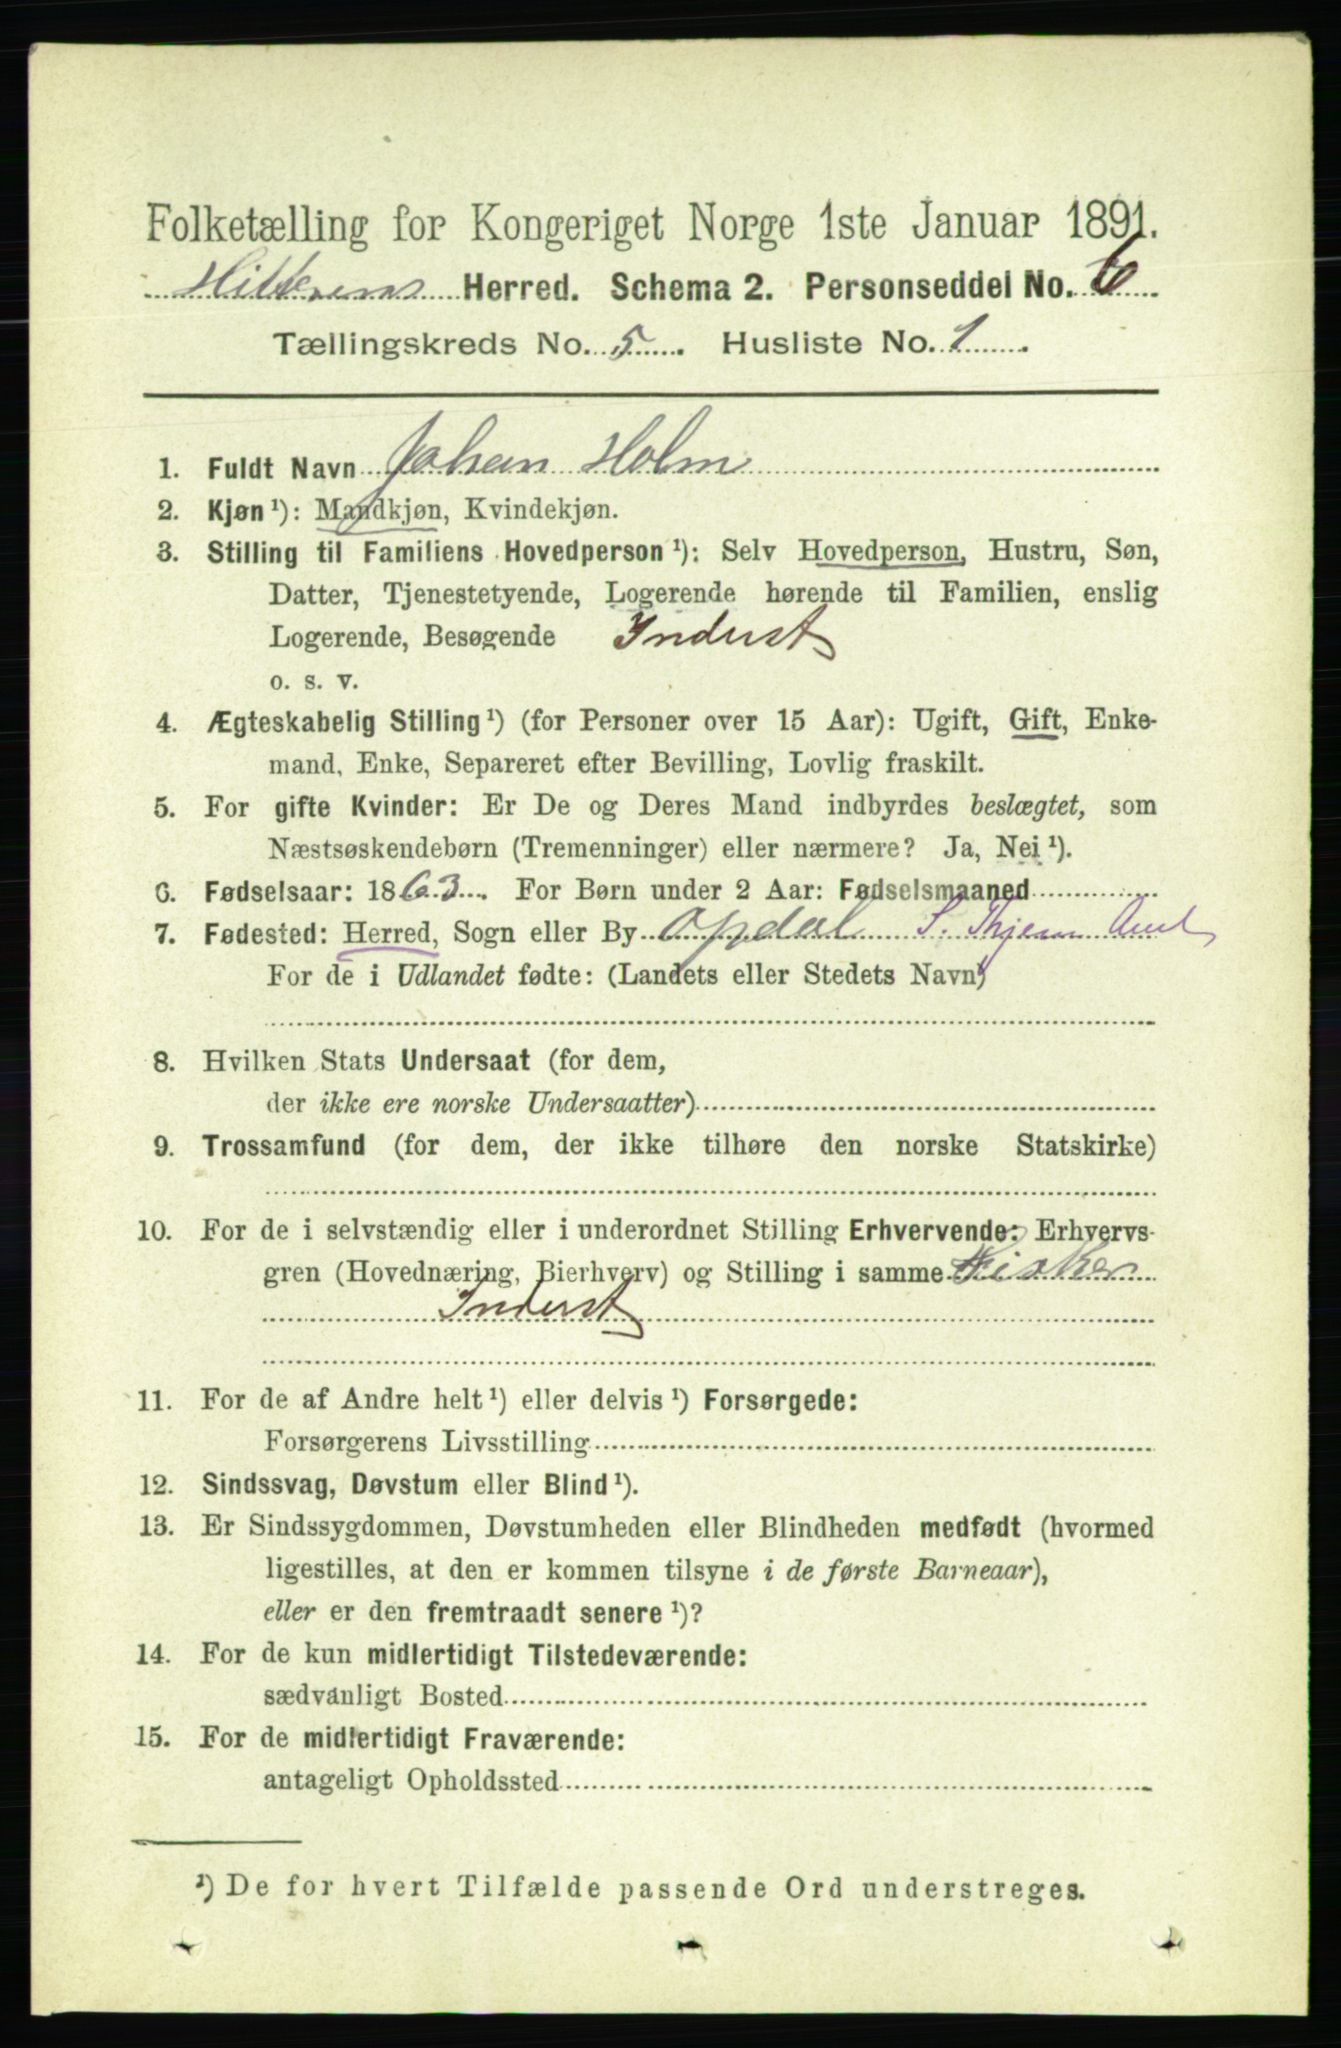 Folketælling for Kongeriget Norge 1ste Januar 1891.
Hitterens Herred. Schema 2. Personseddel No. 6
Tællingskreds No. 5. Husliste No. 1
1. Fuldt Navn Johan Holm
2. Kjøn ¹): Mandkjøn, Kvindekjøn.
3. Stilling til Familiens Hovedperson ¹): Selv Hovedperson, Hustru, Søn,
Datter, Tjenestetyende, Logerende hørende til Familien, enslig
Logerende, Besøgende Inderst
o. s. v.
4. Ægteskabelig Stilling ¹) (for Personer over 15 Aar): Ugift, Gift, Enke-
mand, Enke, Separeret efter Bevilling, Lovlig fraskilt.
5. For gifte Kvinder: Er De og Deres Mand indbyrdes beslægtet, som
Næstsøskendebørn (Tremenninger) eller nærmere? Ja, Nei ¹).
6. Fødselsaar: 1863. For Børn under 2 Aar: Fødselsmaaned
7. Fødested: Herred, Sogn eller By Opdal S. Thjem Amt
For de i Udlandet fødte: (Landets eller Stedets Navn)
8. Hvilken Stats Undersaat (for dem,
der ikke ere norske Undersaatter)
9. Trossamfund (for dem, der ikke tilhøre den norske Statskirke)
10. For de i selvstændig eller i underordnet Stilling Erhvervende: Erhvervs-
gren (Hovednæring, Bierhverv) og Stilling i samme Fisker
Inderst
11. For de af Andre helt ¹) eller delvis ¹) Forsørgede:
Forsørgerens Livsstilling
12. Sindssvag, Døvstum eller Blind ¹).
13. Er Sindssygdommen, Døvstumheden eller Blindheden medfødt (hvormed
ligestilles, at den er kommen tilsyne i de første Barneaar),
eller er den fremtraadt senere ¹)?
14. For de kun midlertidigt Tilstedeværende:
sædvanligt Bosted
15. For de midlertidigt Fraværende:
antageligt Opholdssted
¹) De for hvert Tilfælde passende Ord understreges.